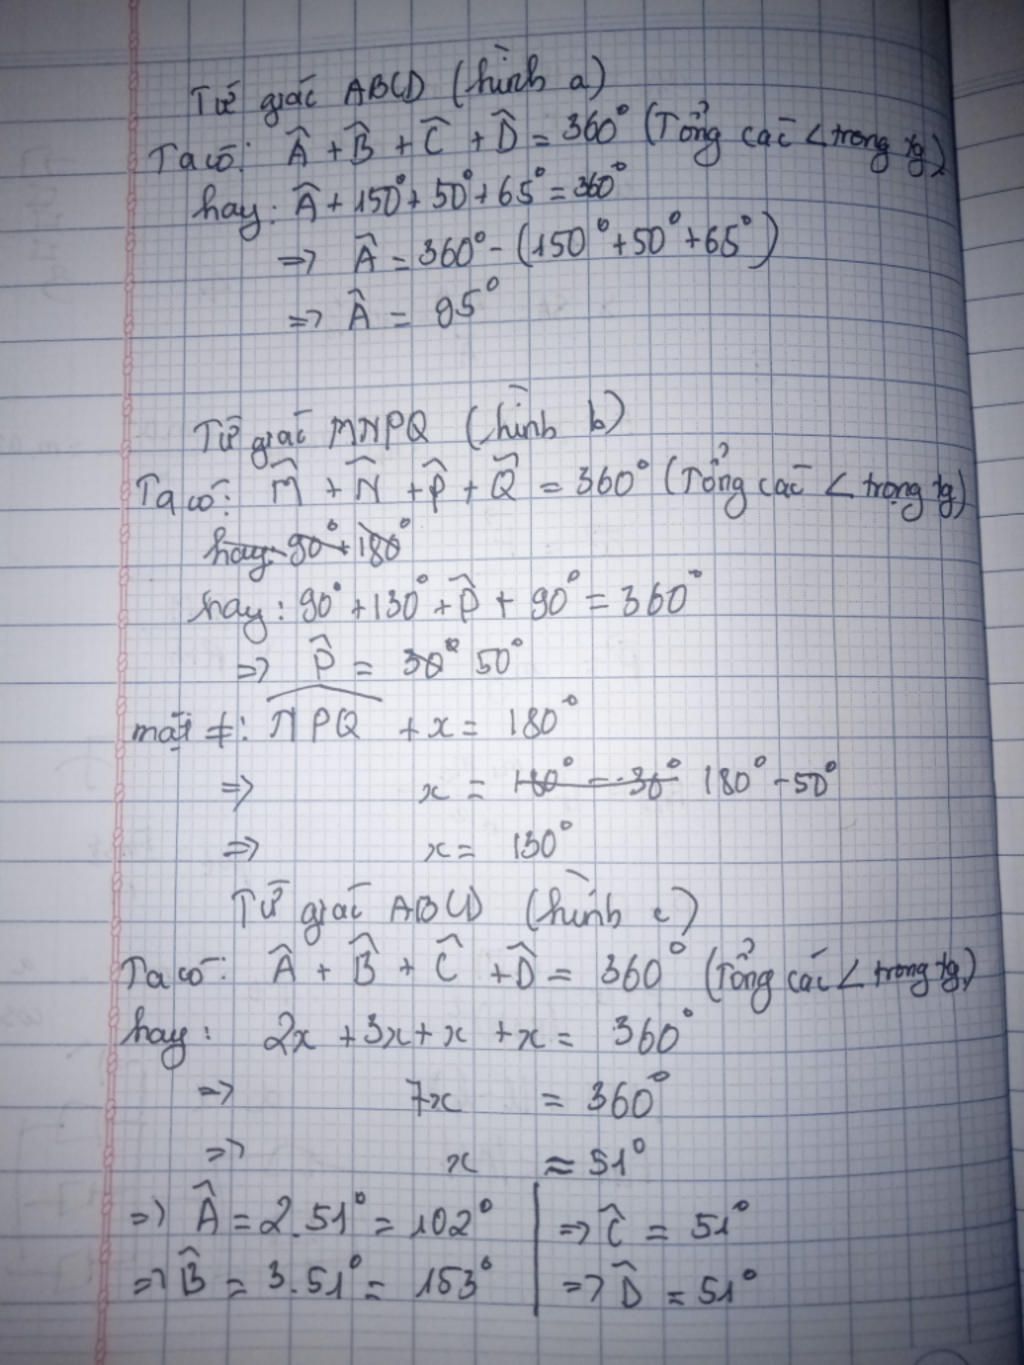 Tứ giác ABCD (hình a)
Ta có: Â + B̂ + Ĉ + D̂ = 360° (Tổng các < trong tg)
hay: Â + 150° + 50° + 65° = 360°
=> Â = 360° - (150° + 50° + 65°)
=> Â = 95°
Tứ giác MNPQ (hình b)
Ta có: M̂ + N̂ + P̂ + Q̂ = 360° (Tổng các < trong tg)
hay: 90° + 180°
hay: 90° + 130° + P̂ + 90° = 360°
=> P̂ = 30° 50°
mặt ≠: NPQ + x = 180°
=> x = 180° - 30° 180° - 50°
=> x = 130°
Tứ giác ABCD (hình c)
Ta có: Â + B̂ + Ĉ + D̂ = 360° (Tổng các < trong tg)
hay: 2x + 3x + x + x = 360°
=> 7x = 360°
=> x ≈ 51°
=> Â = 2.51° = 102° | => Ĉ = 51°
=> B̂ = 3.51° = 153° | => D̂ = 51°